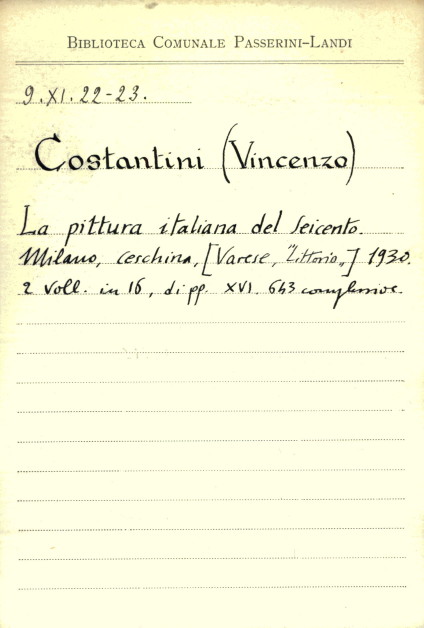 BIBLIOTECA COMUNALE PASSERINI-LANDI
9.XI.22-23.
Costantini (Vincenzo)
La pittura italiana del seicento.
Milano, Ceschina, [Varese, "Littorio„] 1930.
2 voll. in 16, di pp. XVI. 643 complessive.